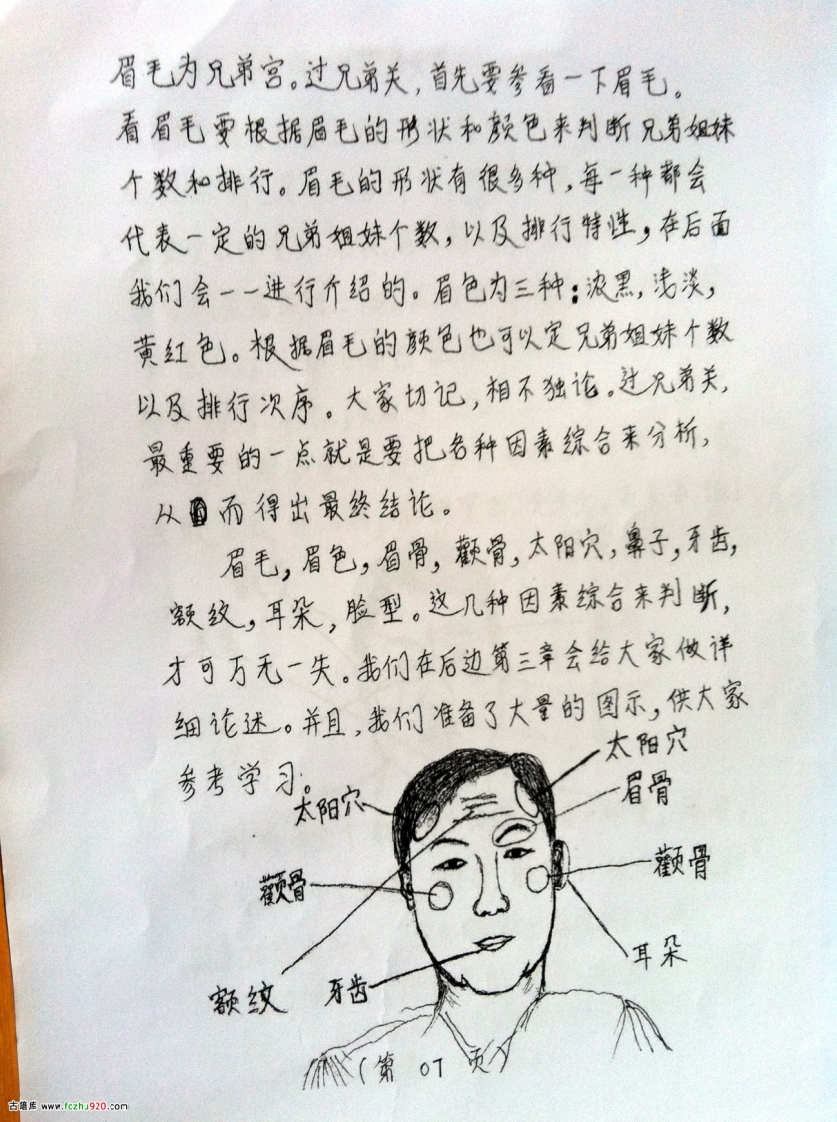 眉毛为兄弟宫。过兄弟关,首先要参看一下眉毛。
看眉毛要根据眉毛的形状和颜色来判断兄弟姐妹
个数和排行。眉毛的形状有很多种,每一种都会
代表一定的兄弟姐妹个数,以及排行特性,在后面
我们会一一进行介绍的。眉色为三种:浓黑,浅淡,
黄红色。根据眉毛的颜色也可以定兄弟姐妹个数
以及排行次序。大家切记,相不独论。过兄弟关,
最重要的一点就是要把各种因素综合来分析,
从而得出最终结论。
眉毛,眉色,眉骨,颧骨,太阳穴,鼻子,牙齿,
额纹,耳朵,脸型。这几种因素综合来判断,
才可万无一失。我们在后边第三章会给大家做详
细论述。并且,我们准备了大量的图示,供大家
参考学习。
太阳穴
太阳穴
眉骨
颧骨
颧骨
耳朵
额纹
牙齿
(第 07 页)
古籍库 www.fczhu920.com